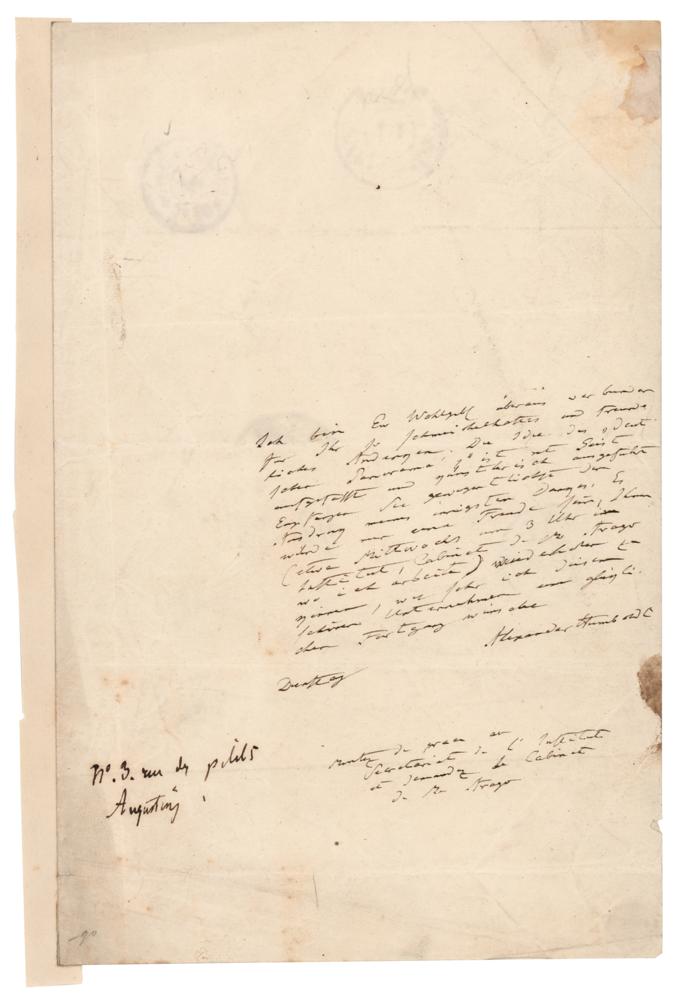 Ich bin Ew Wohlgeb überaus verbunden
für Ihr so schmeichelhaftes und freund
liches Andenken. Die Idee des
Panorama ist mit Geist
aufgefasst und ausgeführt
Empfangen Sie gewogentlichst den
Ausdruck meines innigsten Dankes. Es
würde mir eine Freude sein, Ihnen
(etwa Mittwochs um 3 Uhr im
Institut, Cabinet de Mr Arago
wo ich arbeite)
wie sehr ich diesem
schönen Unternehmen einen glückli-
chen Fortgang wünsche
Alexander Humboldt
Dienstag
montez de grace au
Secretariat de l'Institut
et demandez le Cabinet
de Mr Arago
No. 3. rue des petits
Augustins